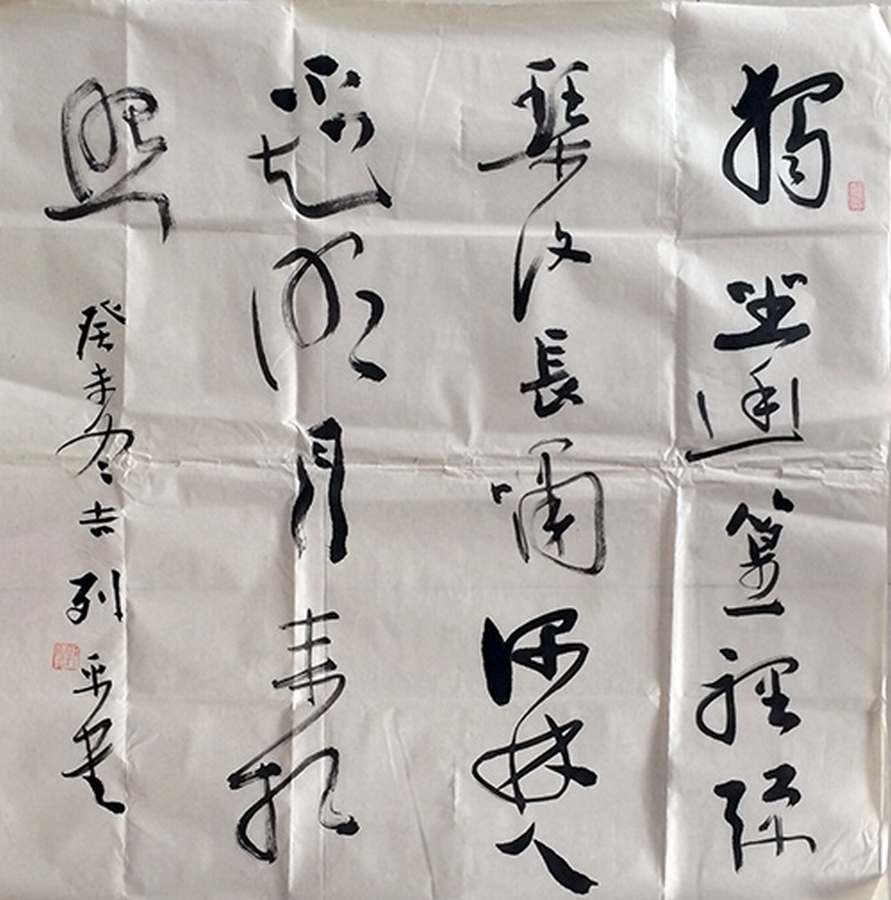 獨坐幽篁裡弹
琴復長嘯深林人
不知明月来相
照
癸未冬吉列平书